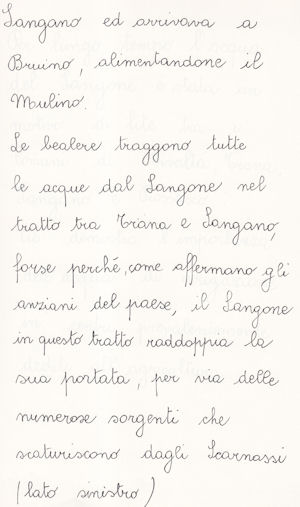 Sangano ed arrivava a
Bruino, alimentandone il
Mulino.
Le bealere traggono tutte
le acque dal Sangone nel
tratto tra Trana e Sangano,
forse perché, come affermano gli
anziani del paese, il Sangone
in questo tratto raddoppia la
sua portata, per via delle
numerose sorgenti che
scaturiscono dagli Scarnassi
(lato sinistro)